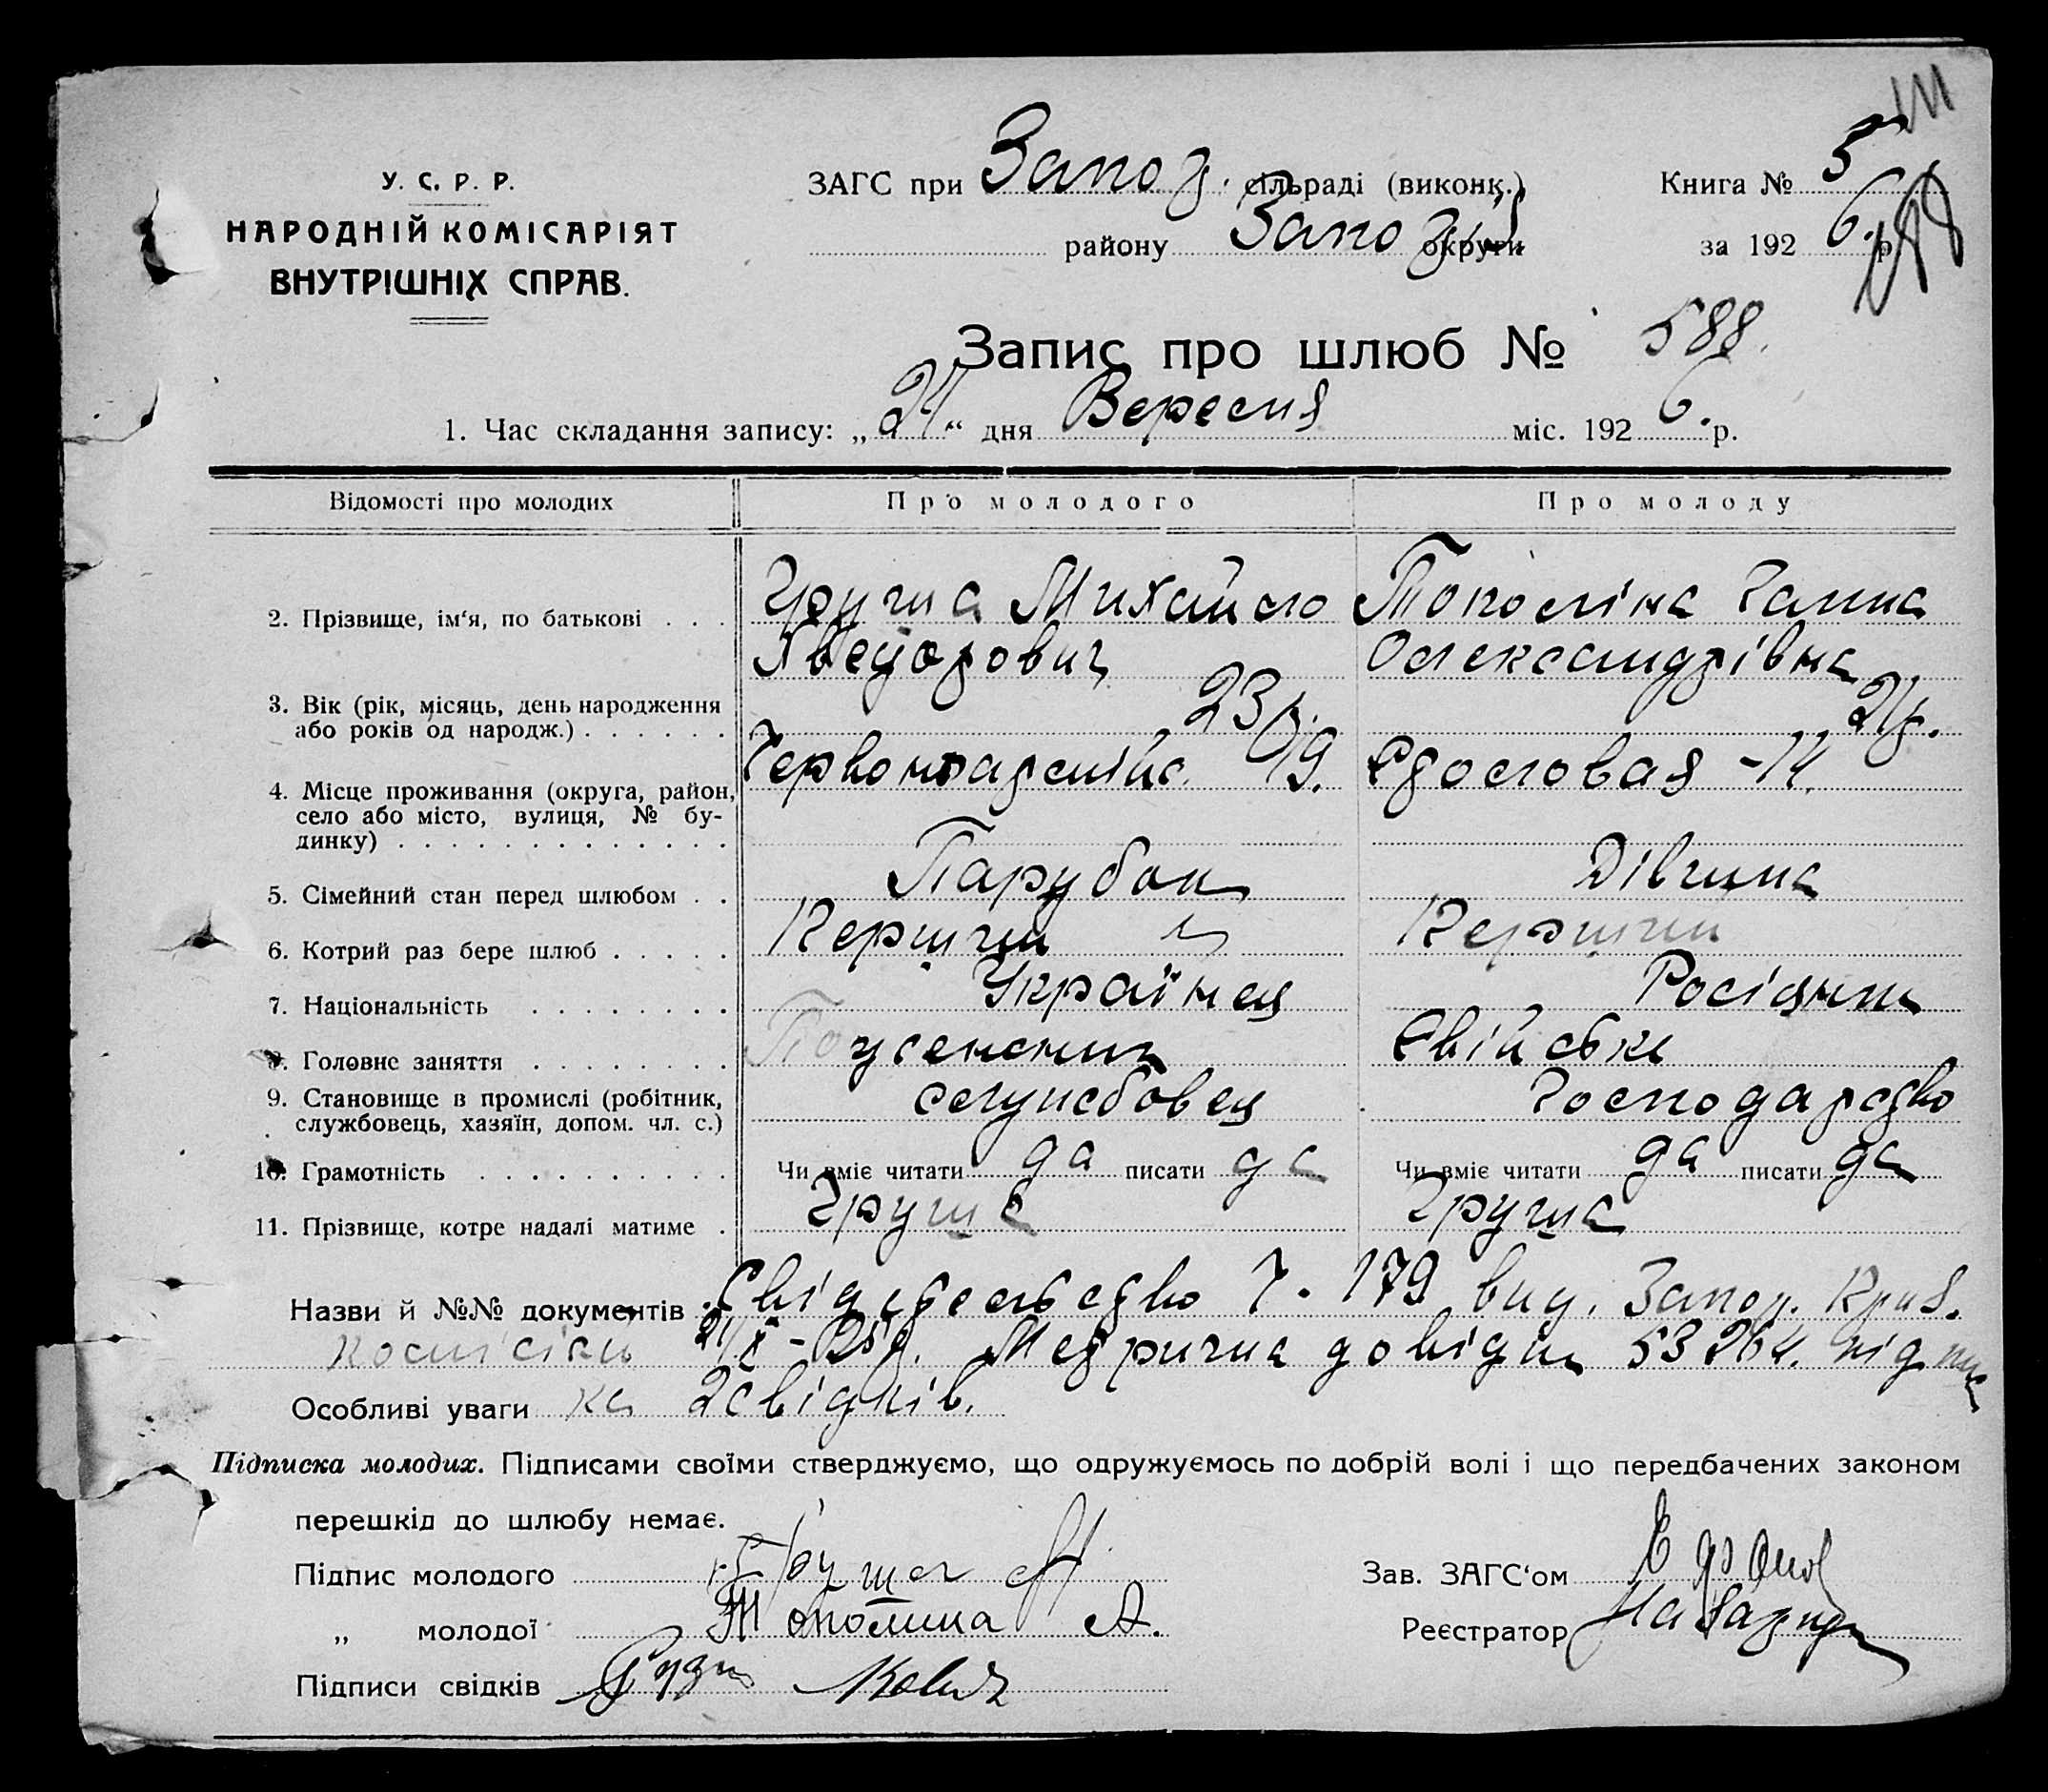 У. С. Р. Р.
НАРОДНІЙ КОМІСАРІЯТ
ВНУТРІШНІХ СПРАВ.
ЗАГС при Запоз. сільраді (виконк.)
району Запоз округи
Книга № 5
за 192 6. р
588
Запис про шлюб № 588.
1. Час складання запису: „24“ дня Вересня міс. 192 6. р.
Відомості про молодих Про молодого Про молоду
2. Прізвище, ім‘я, по батькові . . . Груша Михайло Тополіна Ганна
Хведорович Олександрівна
3. Вік (рік, місяць, день народження 23 р. 21 р.
або років од народж.) . . . . . .
4. Місце проживання (округа, район, Червоноармійс. 19. 14.
село або місто, вулиця, № бу-
динку) . . . . . . . . . . . . . .
5. Сімейний стан перед шлюбом . . Парубок Дівчина
6. Котрий раз бере шлюб . . . . . Перший Перший
7. Національність . . . . . . . . Українец Росіянка
8. Головне заняття . . . . . . . . Свійське
9. Становище в промислі (робітник, служебовец Господарство
службовець, хазяїн, допом. чл. с.)
10. Грамотність . . . . . . . . . . Чи вміє читати да писати да Чи вміє читати да писати да
11. Прізвище, котре надалі матиме . Груша Груша
Назви й №№ документів Свідоцтво Ч. 179 вид. Запоз. Приз.
комісією 21/X - 25 р. Метрична довідка 53264. підпис
Особливі уваги ка 2 свідків.
Підписка молодих. Підписами своїми стверджуємо, що одружуємось по добрій волі і що передбачених законом
перешкід до шлюбу немає.
Підпис молодого Груша М
„ молодої Тополина А.
Підписи свідків
Зав. ЗАГС‘ом
Реєстратор